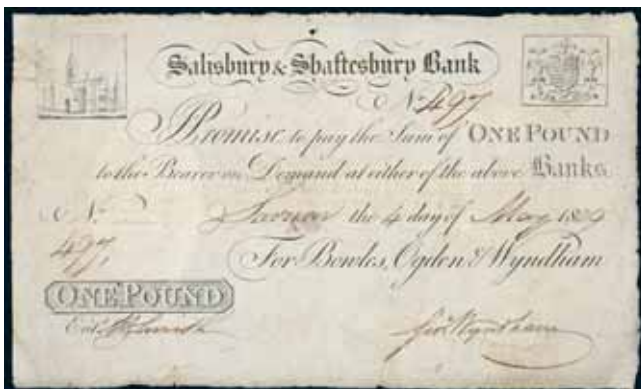 Salisbury & Shaftesbury Bank
No. 497
I Promise to pay the Sum of ONE POUND
to the Bearer on Demand at either of the above Banks
No. the 4 day of May
497
For Bowles, Ogden & Wyndham
ONE POUND
Entd. Geo. Wyndham